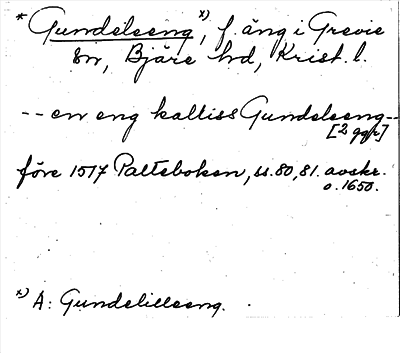 * Gundeleeng x), f. äng i Grevie
sn, Bjäre hd, Krist. l.
-- en eng kaltiss Gundeleeng --
[2 ggr]
före 1517 Palteboken, ss. 80, 81. avskr.
o. 1650.
x) A: Gundelilleeng.